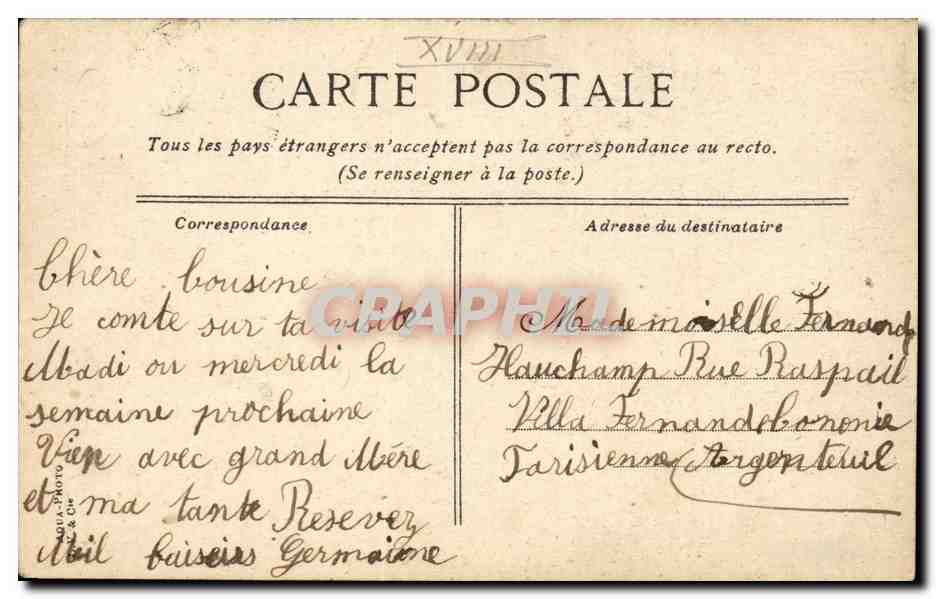 XVIII
CARTE POSTALE
Tous les pays étrangers n'acceptent pas la correspondance au recto.
(Se renseigner à la poste.)
Correspondance
Chère Cousine
Je comte sur ta visite
Madi ou mercredi la
semaine prochaine
Vien avec grand Mère
et ma tante Resevez
Mil baisers Germaine
AQUA-PHOTO
& Cie
Adresse du destinataire
Mademoiselle Fernande
Hauchamp Rue Raspail
Villa Fernand Cononie
Parisienne Argenteuil
CRAPHIL